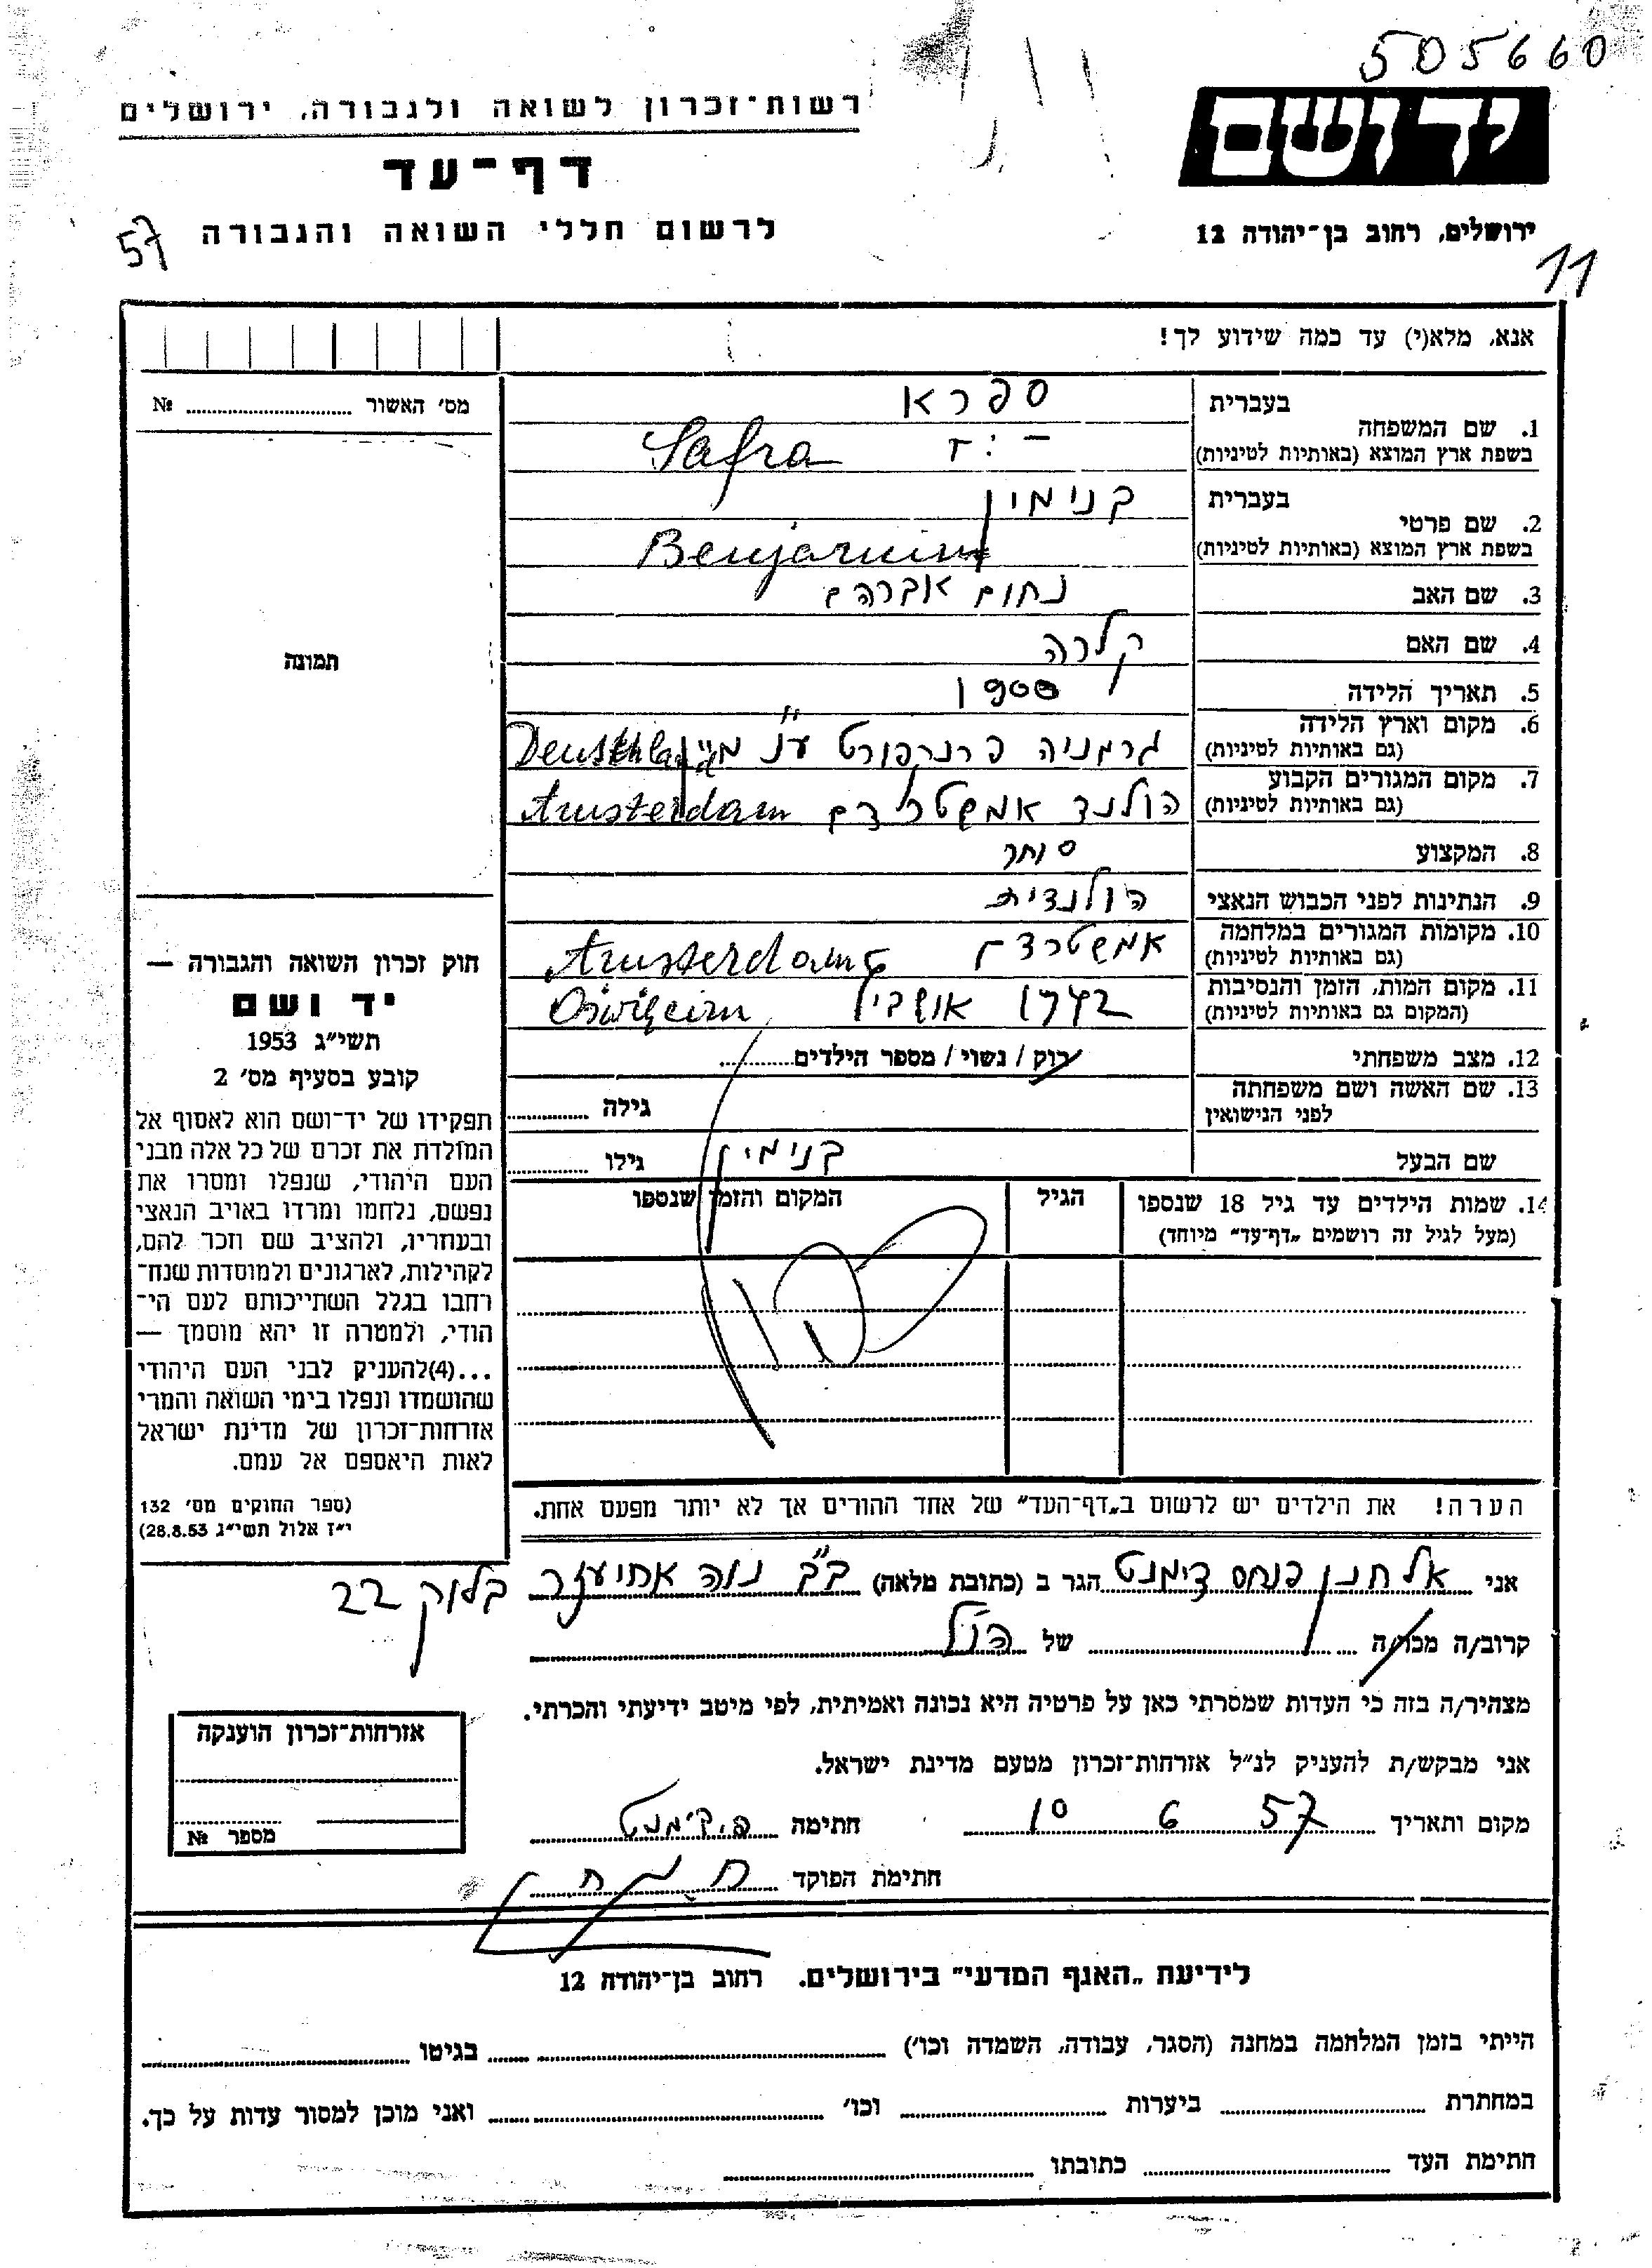 505660
יד ושם
רשות־זכרון לשואה ולגבורה, ירושלים
דף־עד
לרשום חללי השואה והגבורה
57
ירושלים, רחוב בן־יהודה 12
11
אנא, מלא(י) עד כמה שידוע לך!
מס' האשור № 
בעברית ספרא
1. שם המשפחה
בשפת ארץ המוצא (באותיות לטיניות) Safra
בעברית בנימין
2. שם פרטי
בשפת ארץ המוצא (באותיות לטיניות) Benjamin
3. שם האב נחום אברהם
4. שם האם קלרה
5. תאריך הלידה 1900
6. מקום וארץ הלידה
(גם באותיות לטיניות) גרמניה פרנקפורט ע"נ מיין Deutschland
7. מקום המגורים הקבוע
(גם באותיות לטיניות) הולנד אמשטרדם Amsterdam
8. המקצוע סוחר
9. הנתינות לפני הכבוש הנאצי הולנדית
10. מקומות המגורים במלחמה
(גם באותיות לטיניות) אמשטרדם Amsterdam
11. מקום המות, הזמן והנסיבות
(המקום גם באותיות לטיניות)
12. מצב משפחתי רוק / נשוי / מספר הילדים
13. שם האשה ושם משפחתה
לפני הנישואין גילה
שם הבעל בנימין גילו
14. שמות הילדים עד גיל 18 שנספו
(מעל לגיל זה רושמים „דף־עד" מיוחד)
הגיל
המקום והזמן שנספו
תמונה
חוק זכרון השואה והגבורה —
יד ושם
תשי"ג 1953
קובע בסעיף מס' 2
תפקידו של יד־ושם הוא לאסוף אל
המולדת את זכרם של כל אלה מבני
העם היהודי, שנפלו ומסרו את
נפשם, נלחמו ומרדו באויב הנאצי
ובעוזריו, ולהציב שם וזכר להם,
לקהילות, לארגונים ולמוסדות שנח־
רחבו בגלל השתייכותם לעם הי־
הודי, ולמטרה זו יהא מוסמך —
...(4)להעניק לבני העם היהודי
שהושמדו ונפלו בימי השואה והמרי
אזרחות־זכרון של מדינת ישראל
לאות היאספם אל עמם.
(ספר החוקים מס' 132
י"ז אלול תשי"ג 28.8.53)
הערה! את הילדים יש לרשום ב„דף־העד" של אחד ההורים אך לא יותר מפעם אחת.
אני אלחנן פנחס דימנט הגר ב (כתובת מלאה) ב"ב נוה אחיעזר בלוק 22
קרוב/ה מכר/ה של הנ"ל
מצהיר/ה בזה כי העדות שמסרתי כאן על פרטיה היא נכונה ואמיתית, לפי מיטב ידיעתי והכרתי.
אני מבקש/ת להעניק לנ"ל אזרחות־זכרון מטעם מדינת ישראל.
מקום ותאריך 10 6 57 חתימה פ. דימנט
חתימת הפוקד
אזרחות־זכרון הוענקה
מספר №
לידיעת „האגף המדעי" בירושלים. רחוב בן־יהודה 12
הייתי בזמן המלחמה במחנה (הסגר, עבודה, השמדה וכו') בגיטו
במחתרת ביערות וכו' ואני מוכן למסור עדות על כך.
חתימת העד כתובתו